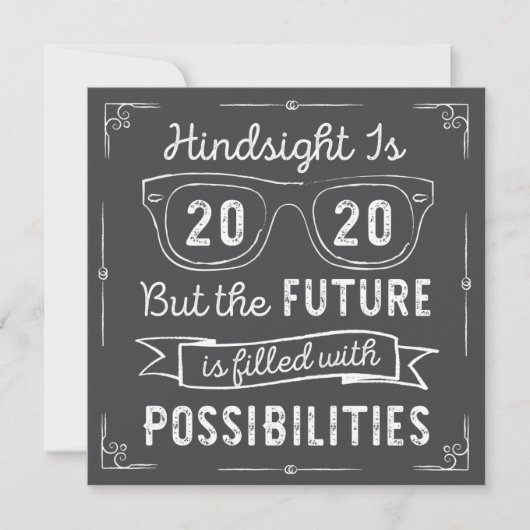 Hindsight Is
20 20
But the FUTURE
is filled with
POSSIBILITIES